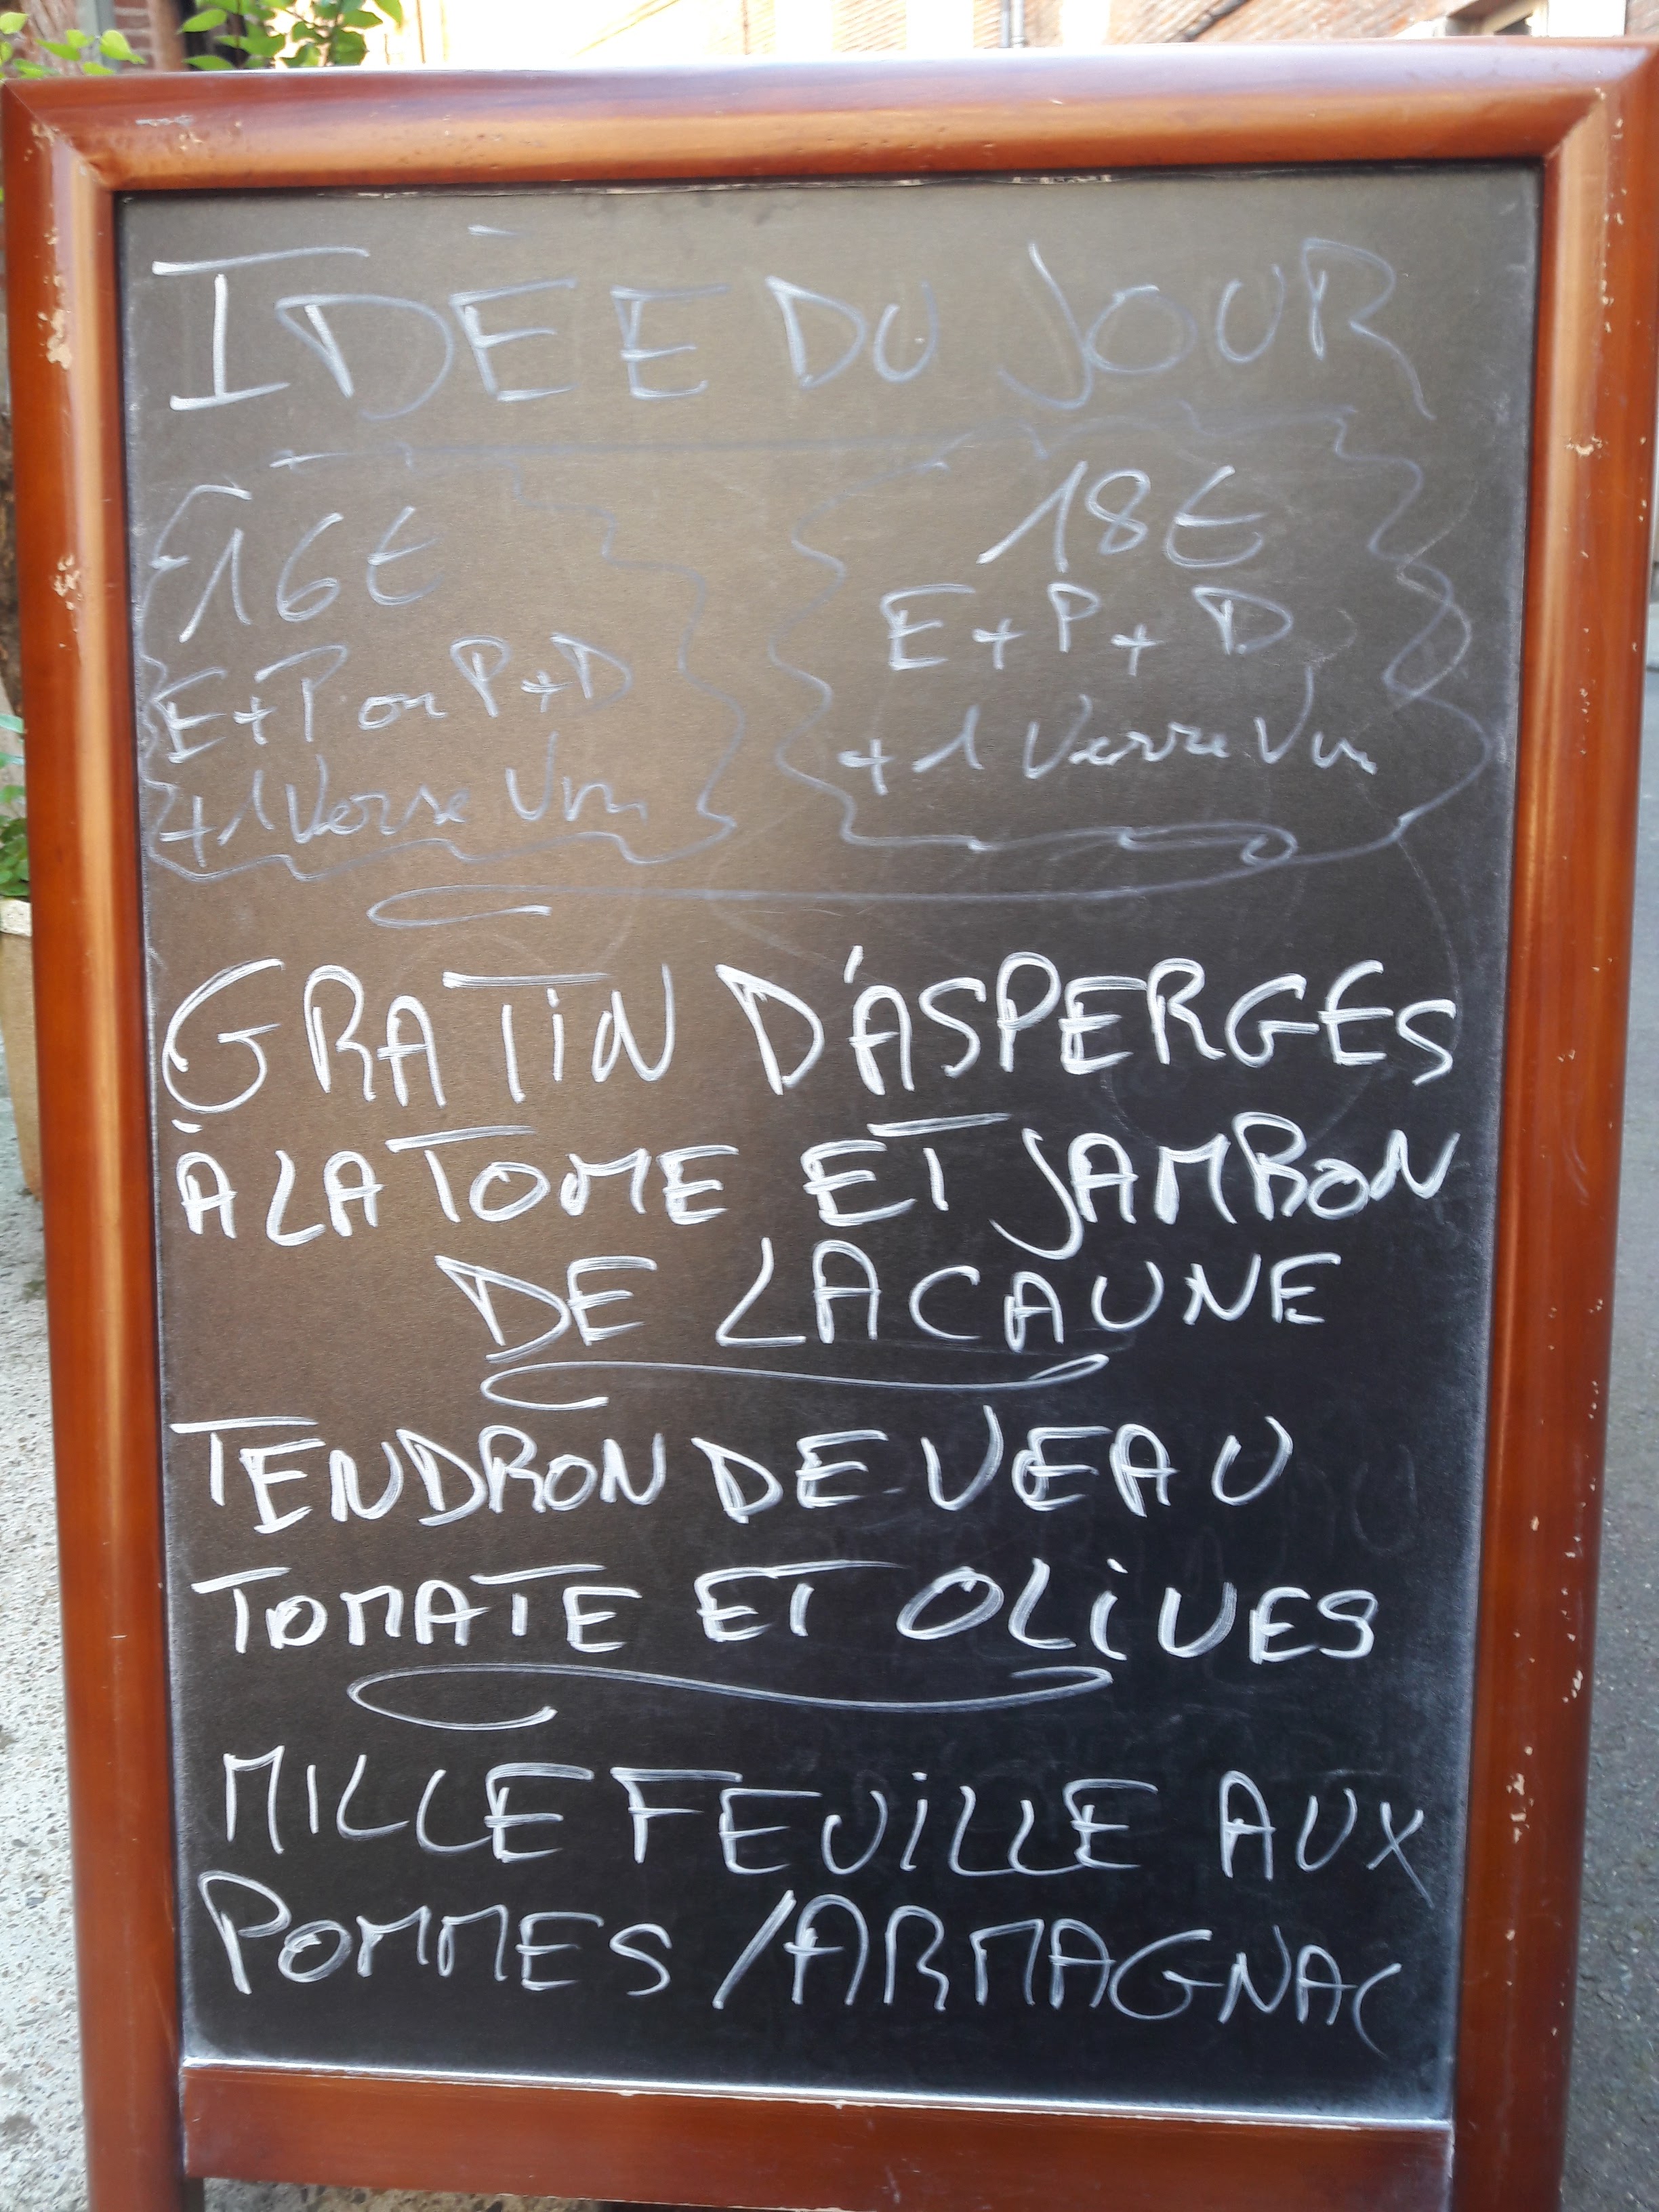 IDÉE DU JOUR
16€
E+P ou P+D
+1 Verre Vin
18€
E+P+D
+1 Verre Vin
GRATIN D'ASPERGES
À LA TOME ET JAMBON
DE LACAUNE
TENDRON DE VEAU
TOMATE ET OLIVES
MILLE FEUILLE AUX
POMMES / ARMAGNAC